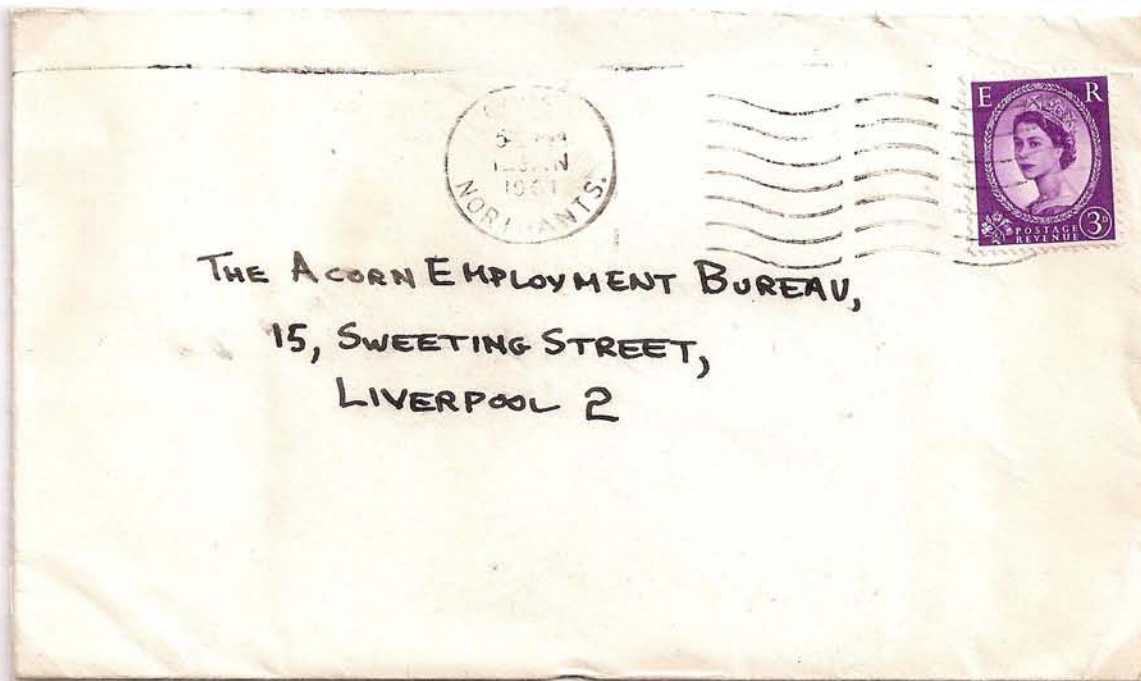 NORTHANTS.
E R
POSTAGE
REVENUE
3D
THE ACORN EMPLOYMENT BUREAU,
15, SWEETING STREET,
LIVERPOOL 2